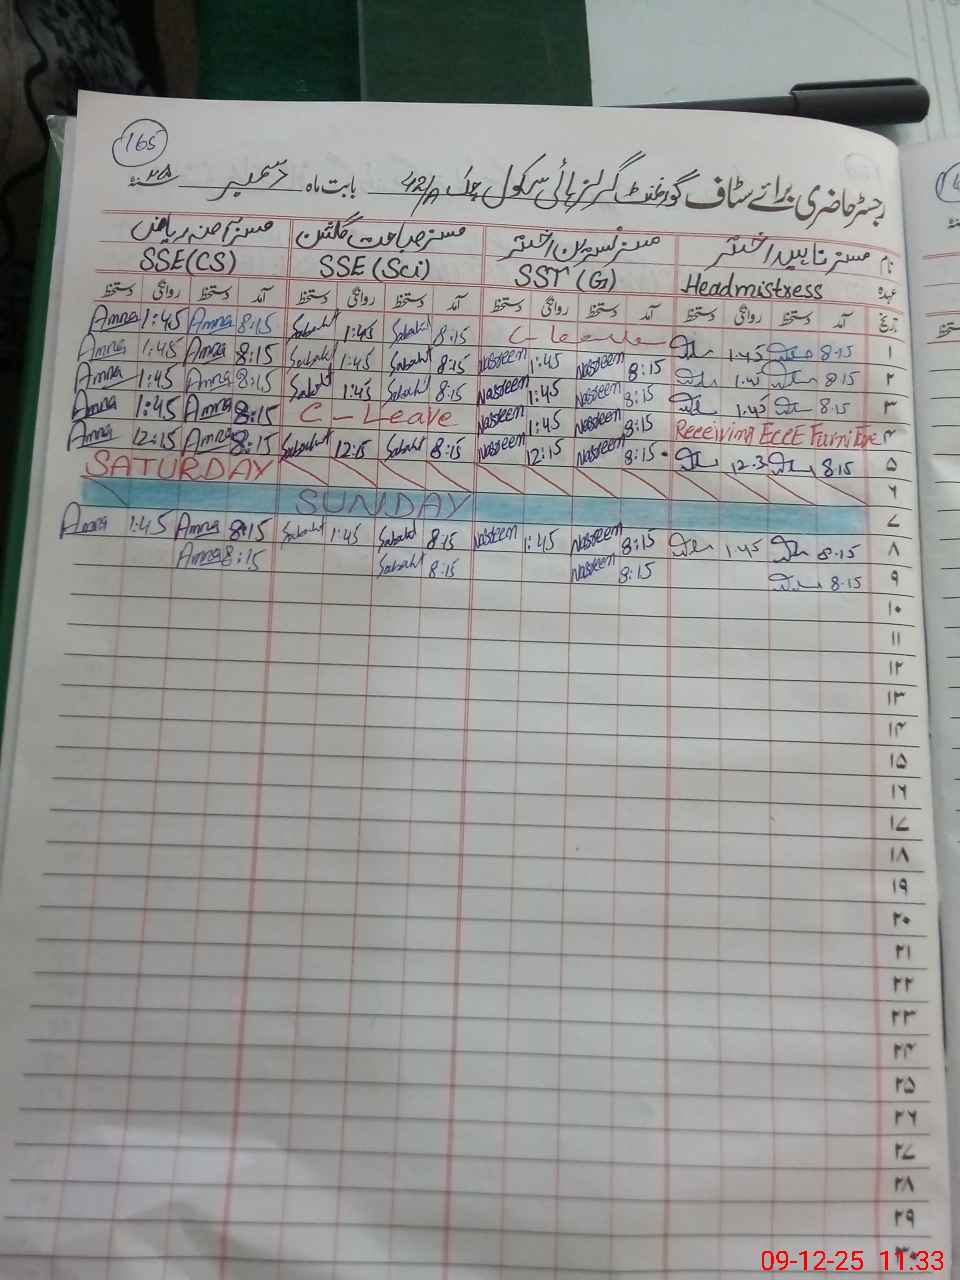 165
رجسٹر حاضری برائے سٹاف گورنمنٹ گرلز ہائی سکول چک 42/A بابت ماہ دسمبر ۲۵ سنہ
نام مسز ناہید اختر مسز نسرین اختر مسز صباحت گلشن مسز آمنہ ریاض
عہدہ Headmistress SST (G) SSE (Sci) SSE (CS)
تاریخ آمد دستخط روانگی دستخط آمد دستخط روانگی دستخط آمد دستخط روانگی دستخط آمد دستخط روانگی دستخط
Amna 1:45 Amna 8:15 Sabahat 1:45 Sabahat 8:15 C-leave 1:45 8:15 ۱
Amna 1:45 Amna 8:15 Sabahat 1:45 Sabahat 8:15 Nasreem 1:45 Nasreem 8:15 1:45 8:15 ۲
Amna 1:45 Amna 8:15 Sabahat 1:45 Sabahat 8:15 Nasreem 1:45 Nasreem 8:15 1:45 8:15 ۳
Amna 1:45 Amna 8:15 C-Leave Nasreem 1:45 Nasreem 8:15 Receiving ECCE Furniture ۴
Amna 12:15 Amna 8:15 Sabahat 12:15 Sabahat 8:15 Nasreem 12:15 Nasreem 8:15 12:3 8:15 ۵
SATURDAY ۶
SUNDAY ۷
Amna 1:45 Amna 8:15 Sabahat 1:45 Sabahat 8:15 Nasreem 1:45 Nasreem 8:15 1:45 8:15 ۸
Amna 8:15 Sabahat 8:15 Nasreem 8:15 8:15 ۹
۱۰
۱۱
۱۲
۱۳
۱۴
۱۵
۱۶
۱۷
۱۸
۱۹
۲۰
۲۱
۲۲
۲۳
۲۴
۲۵
۲۶
۲۷
۲۸
۲۹
۳۰
09-12-25 11:33